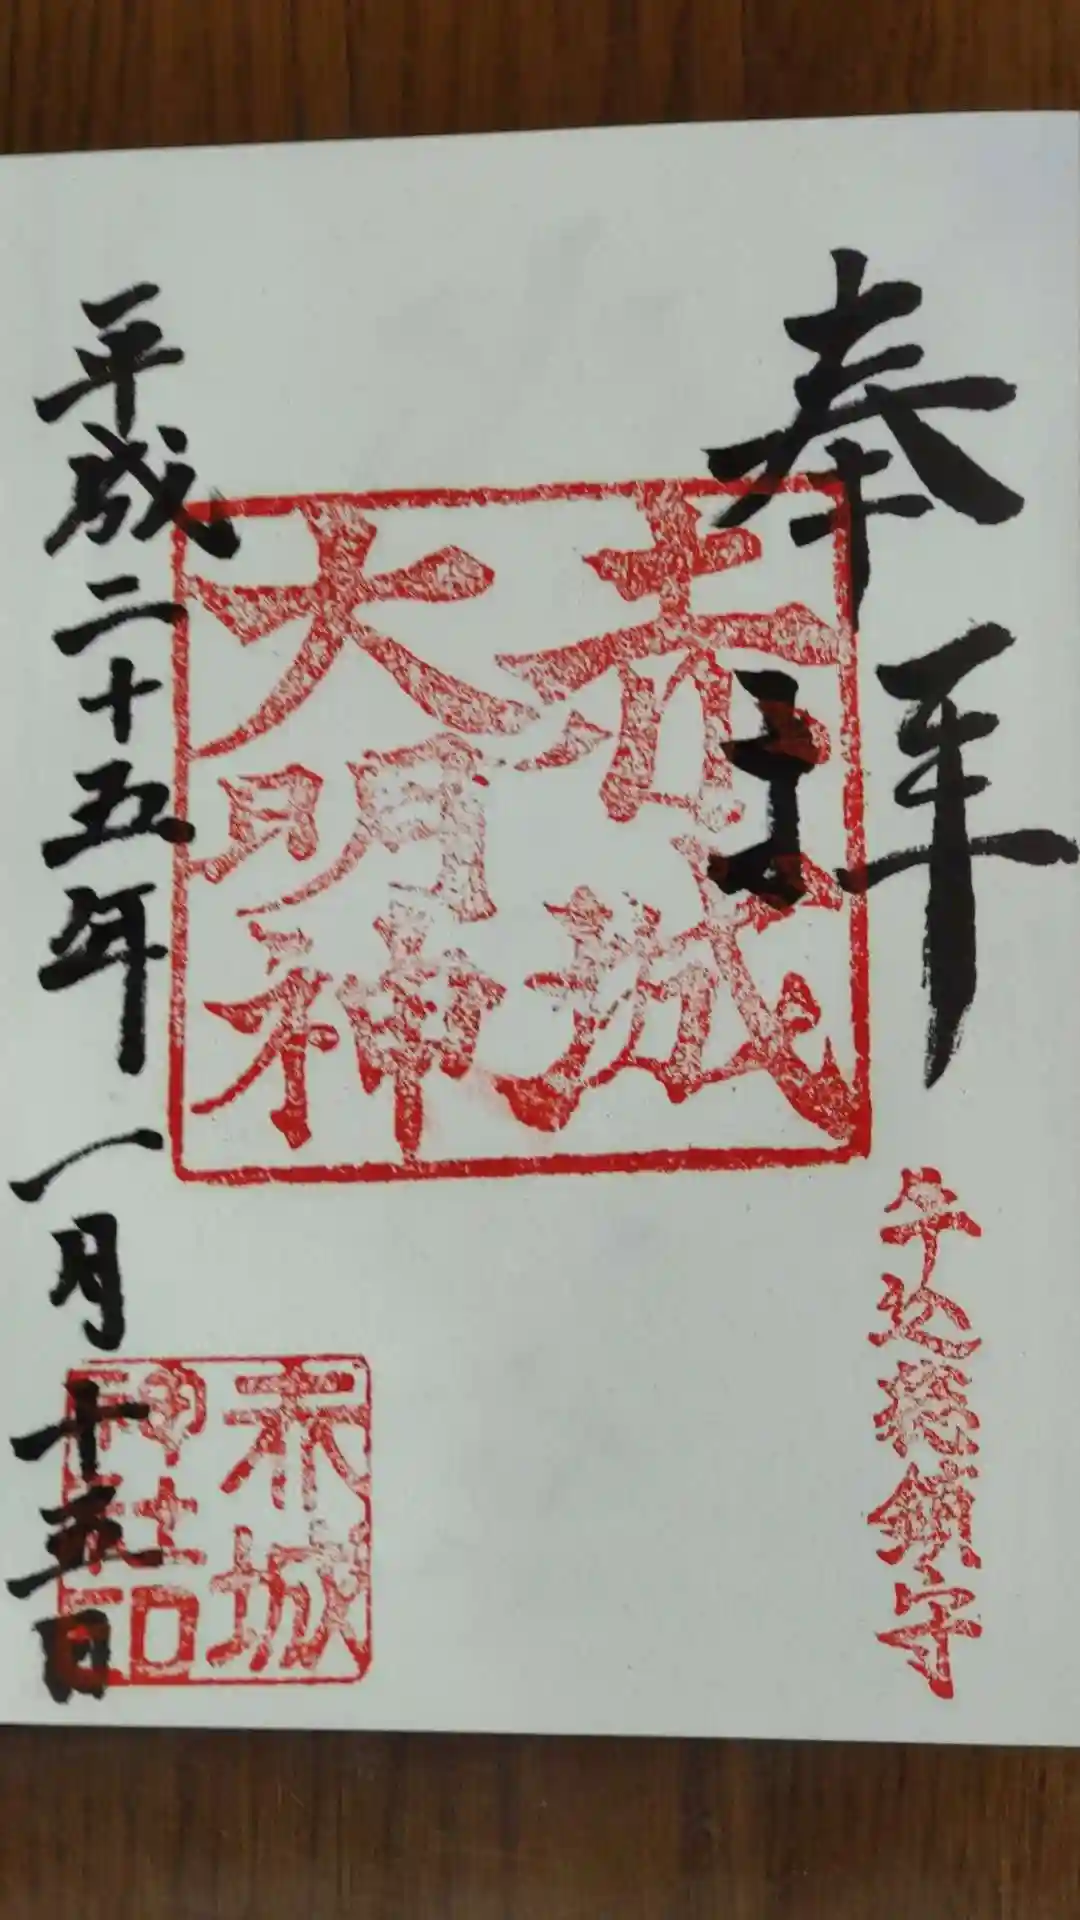 奉拝
牛込総鎮守
赤城
大明神
赤城
神社印
平成二十五年一月十五日